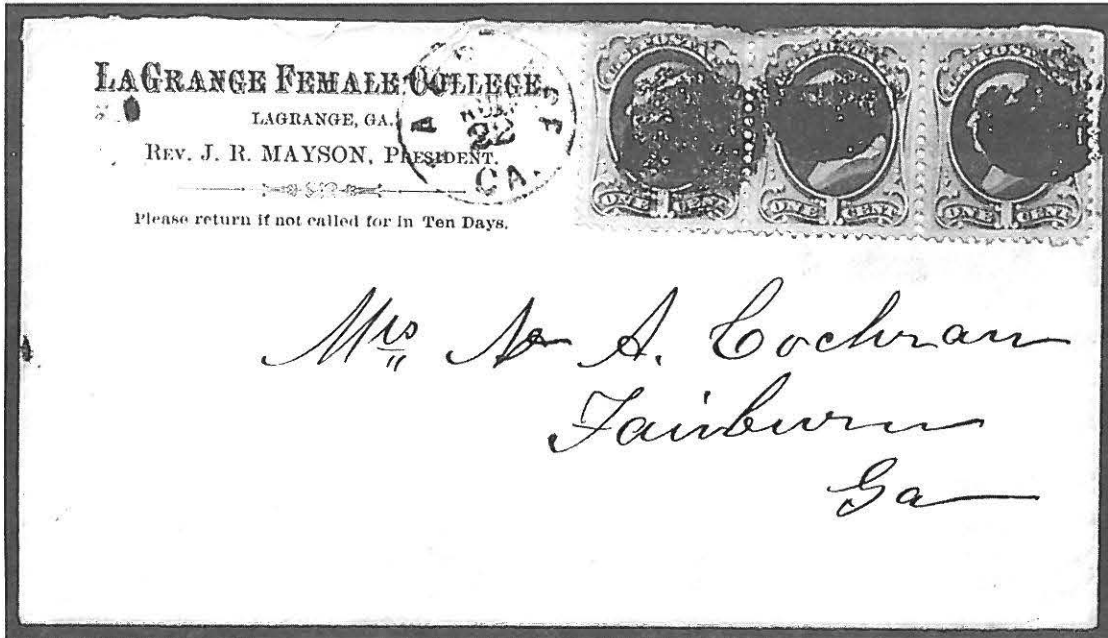 LAGRANGE FEMALE COLLEGE,
LAGRANGE, GA.
REV. J. R. MAYSON, PRESIDENT.
Please return if not called for in Ten Days.
22
GA.
ONE CENT
ONE CENT
ONE CENT
Mrs A. Cochran
Fairburn
Ga